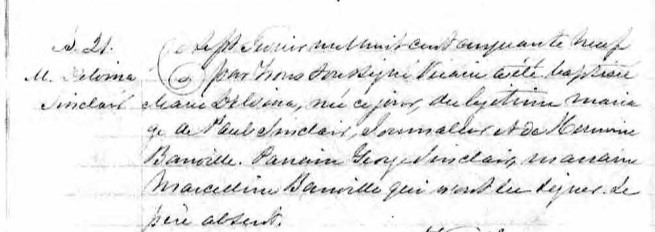 B. 21.
M. Delvina
Sinclair
Le sept Fevrier mil huit cent cinquante neuf
par Nous soussigné Vicaire a été baptisée
Marie Delvina, née ce jour, du légitime maria
ge de Paul Sinclair, Journalier et de Hermine
Banville. Parrain George Sinclair, marraine
Marcelline Banville qui n'ont su signer. Le
père absent.